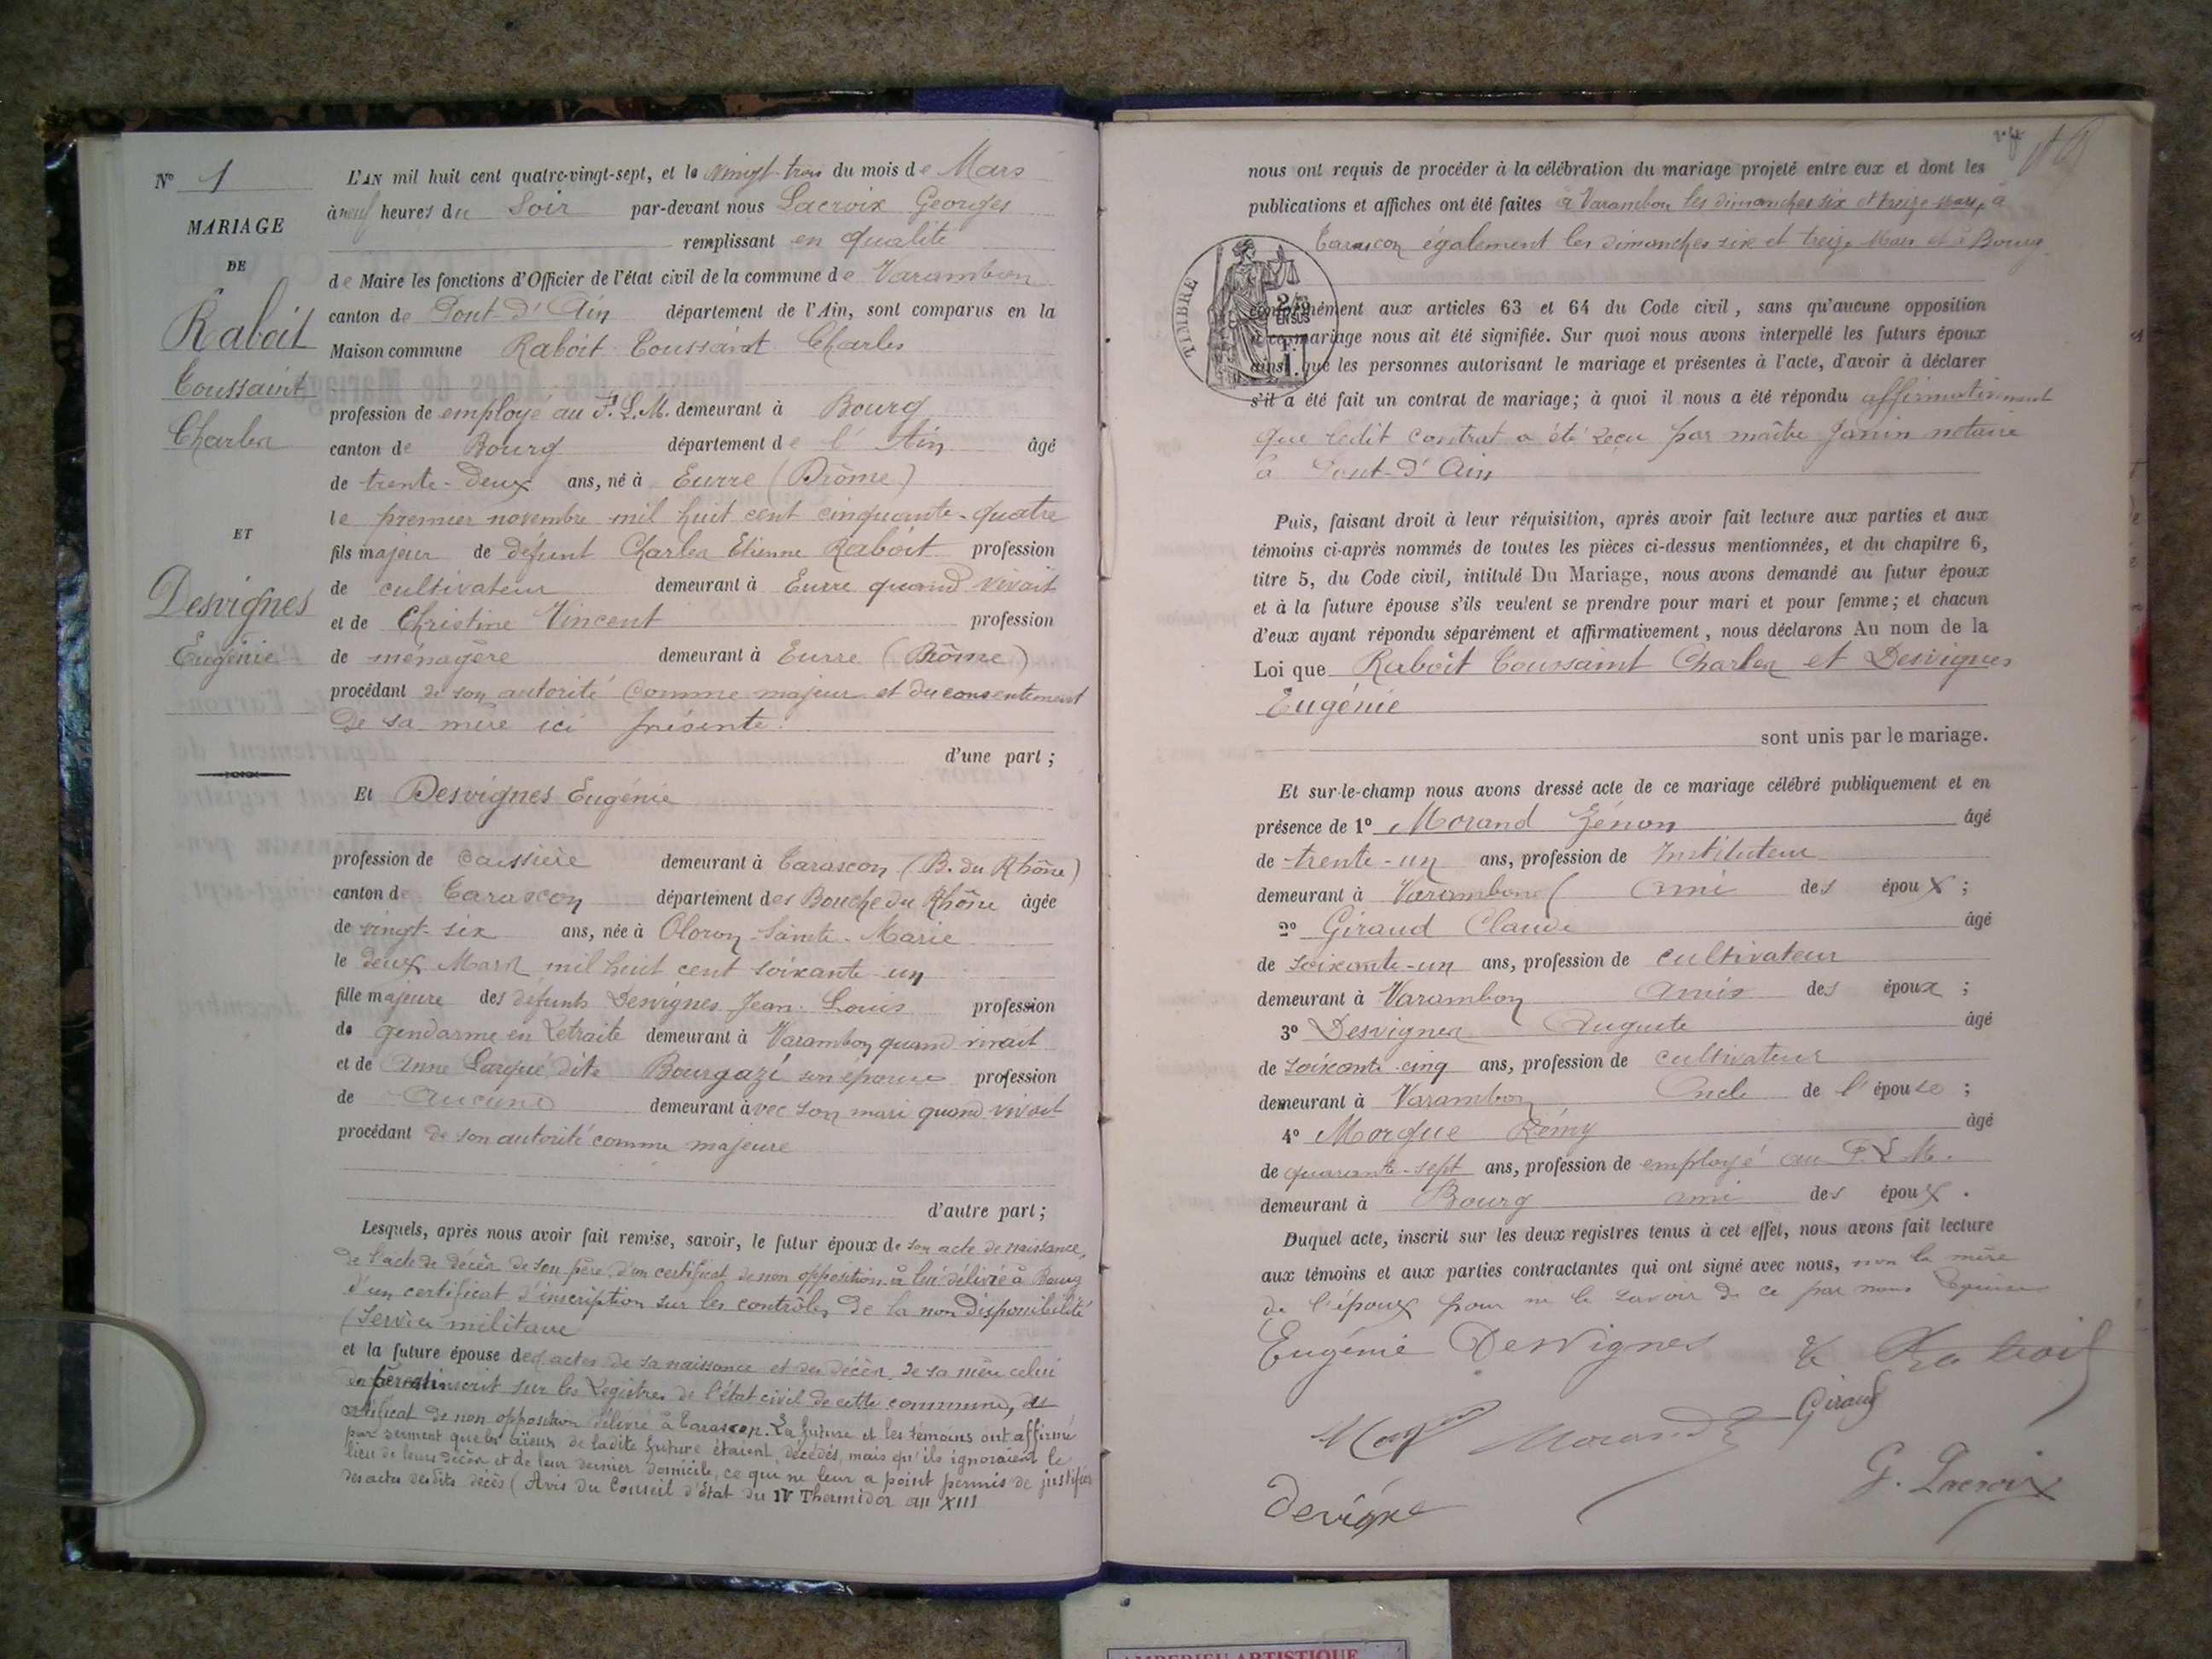 N° 1
MARIAGE
DE
Raboit
Toussaint
Charles
ET
Desvignes
Eugénie
L'AN mil huit cent quatre-vingt-sept, et le vingt-trois du mois de Mars
à neuf heures du Soir par-devant nous Lacroix Georges
remplissant en qualité
de Maire les fonctions d'Officier de l'état civil de la commune de Varambon
canton de Pont-d'Ain département de l'Ain, sont comparus en la
Maison commune Raboit Toussaint Charles
profession de employé au P. L. M. demeurant à Bourg
canton de Bourg département de l'Ain âgé
de trente-deux ans, né à Eurre (Drôme)
le premier novembre mil huit cent cinquante-quatre
fils majeur de défunt Charles Etienne Raboit profession
de cultivateur demeurant à Eurre quand vivait
et de Christine Vincent profession
de ménagère demeurant à Eurre (Drôme)
procédant de son autorité comme majeur et du consentement
de sa mère ici présente.
d'une part ;
Et Desvignes Eugénie
profession de caissière demeurant à Tarascon (B. du Rhône)
canton de Tarascon département des Bouche du Rhône âgée
de vingt-six ans, née à Oloron-Sainte-Marie
le deux Mars mil huit cent soixante-un
fille majeure des défunts Desvignes Jean-Louis profession
de gendarme en retraite demeurant à Varambon quand vivait
et de Anne Larqué dite Bourgazi son épouse profession
de Aucune demeurant avec son mari quand vivait
procédant de son autorité comme majeure
d'autre part ;
Lesquels, après nous avoir fait remise, savoir, le futur époux de son acte de naissance,
de l'acte de décès de son père, d'un certificat de non opposition à lui délivré à Bourg
d'un certificat d'inscription sur les contrôles de la non disponibilité
(service militaire
et la future épouse des actes de sa naissance et du décès de sa mère celui
inscrit sur les registres de l'état civil de cette commune, du
certificat de non opposition délivré à Tarascon. La future et les témoins ont affirmé
par serment que les aïeux de ladite future étaient décédés, mais qu'ils ignoraient le
lieu de leurs décès et de leur dernier domicile, ce qui ne leur a point permis de justifier
des actes desdits décès (Avis du Conseil d'État du IV Thermidor an XIII
nous ont requis de procéder à la célébration du mariage projeté entre eux et dont les
publications et affiches ont été faites à Varambon les dimanches six et treize mars, à
Tarascon également les dimanches six et treize Mars et à Bourg.
TIMBRE
2/10
EN SUS
conformément aux articles 63 et 64 du Code civil, sans qu'aucune opposition
à ce mariage nous ait été signifiée. Sur quoi nous avons interpellé les futurs époux
ainsi que les personnes autorisant le mariage et présentes à l'acte, d'avoir à déclarer
s'il a été fait un contrat de mariage ; à quoi il nous a été répondu affirmativement
que ledit contrat a été reçu par maître Janin notaire
à Pont-d'Ain
Puis, faisant droit à leur réquisition, après avoir fait lecture aux parties et aux
témoins ci-après nommés de toutes les pièces ci-dessus mentionnées, et du chapitre 6,
titre 5, du Code civil, intitulé Du Mariage, nous avons demandé au futur époux
et à la future épouse s'ils veulent se prendre pour mari et pour femme ; et chacun
d'eux ayant répondu séparément et affirmativement, nous déclarons Au nom de la
Loi que Raboit Toussaint Charles et Desvignes
Eugénie
sont unis par le mariage.
Et sur-le-champ nous avons dressé acte de ce mariage célébré publiquement et en
présence de 1° Morand Zénon âgé
de trente-un ans, profession de Instituteur
demeurant à Varambon ami des époux ;
2° Giraud Claude âgé
de soixante-un ans, profession de cultivateur
demeurant à Varambon amis des époux ;
3° Desvignes Auguste âgé
de soixante-cinq ans, profession de cultivateur
demeurant à Varambon Oncle de l'épouse ;
4° Morgue Rémy âgé
de quarante-sept ans, profession de employé au P. L. M.
demeurant à Bourg ami des époux.
Duquel acte, inscrit sur les deux registres tenus à cet effet, nous avons fait lecture
aux témoins et aux parties contractantes qui ont signé avec nous, non la mère
de l'époux pour ne le savoir de ce par nous requise
Eugénie Desvignes Raboit
Giraud
Morand
G. Lacroix
Devigne
AMBERIEU ARTISTIQUE